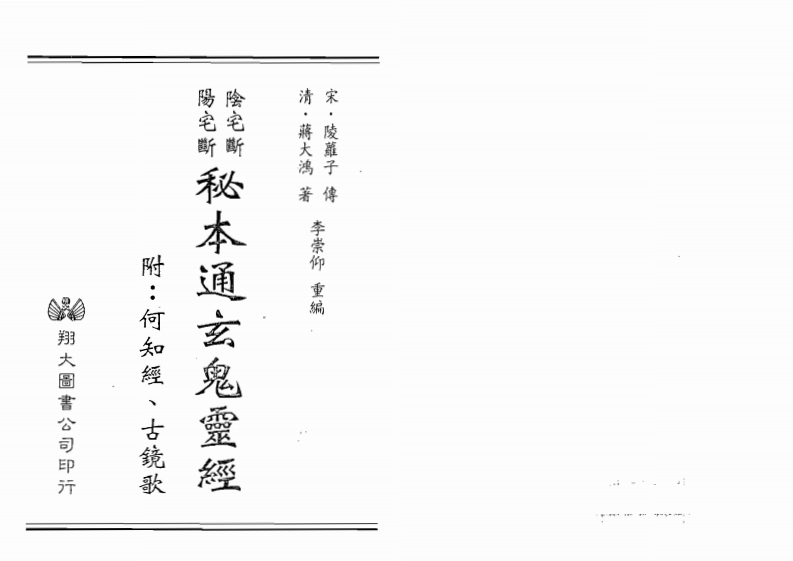 宋·陵蘿子 傳
清·蔣大鴻 著
李崇仰 重編
陰宅斷
陽宅斷
秘本通玄鬼靈經
附：何知經、古鏡歌
翔大圖書公司印行